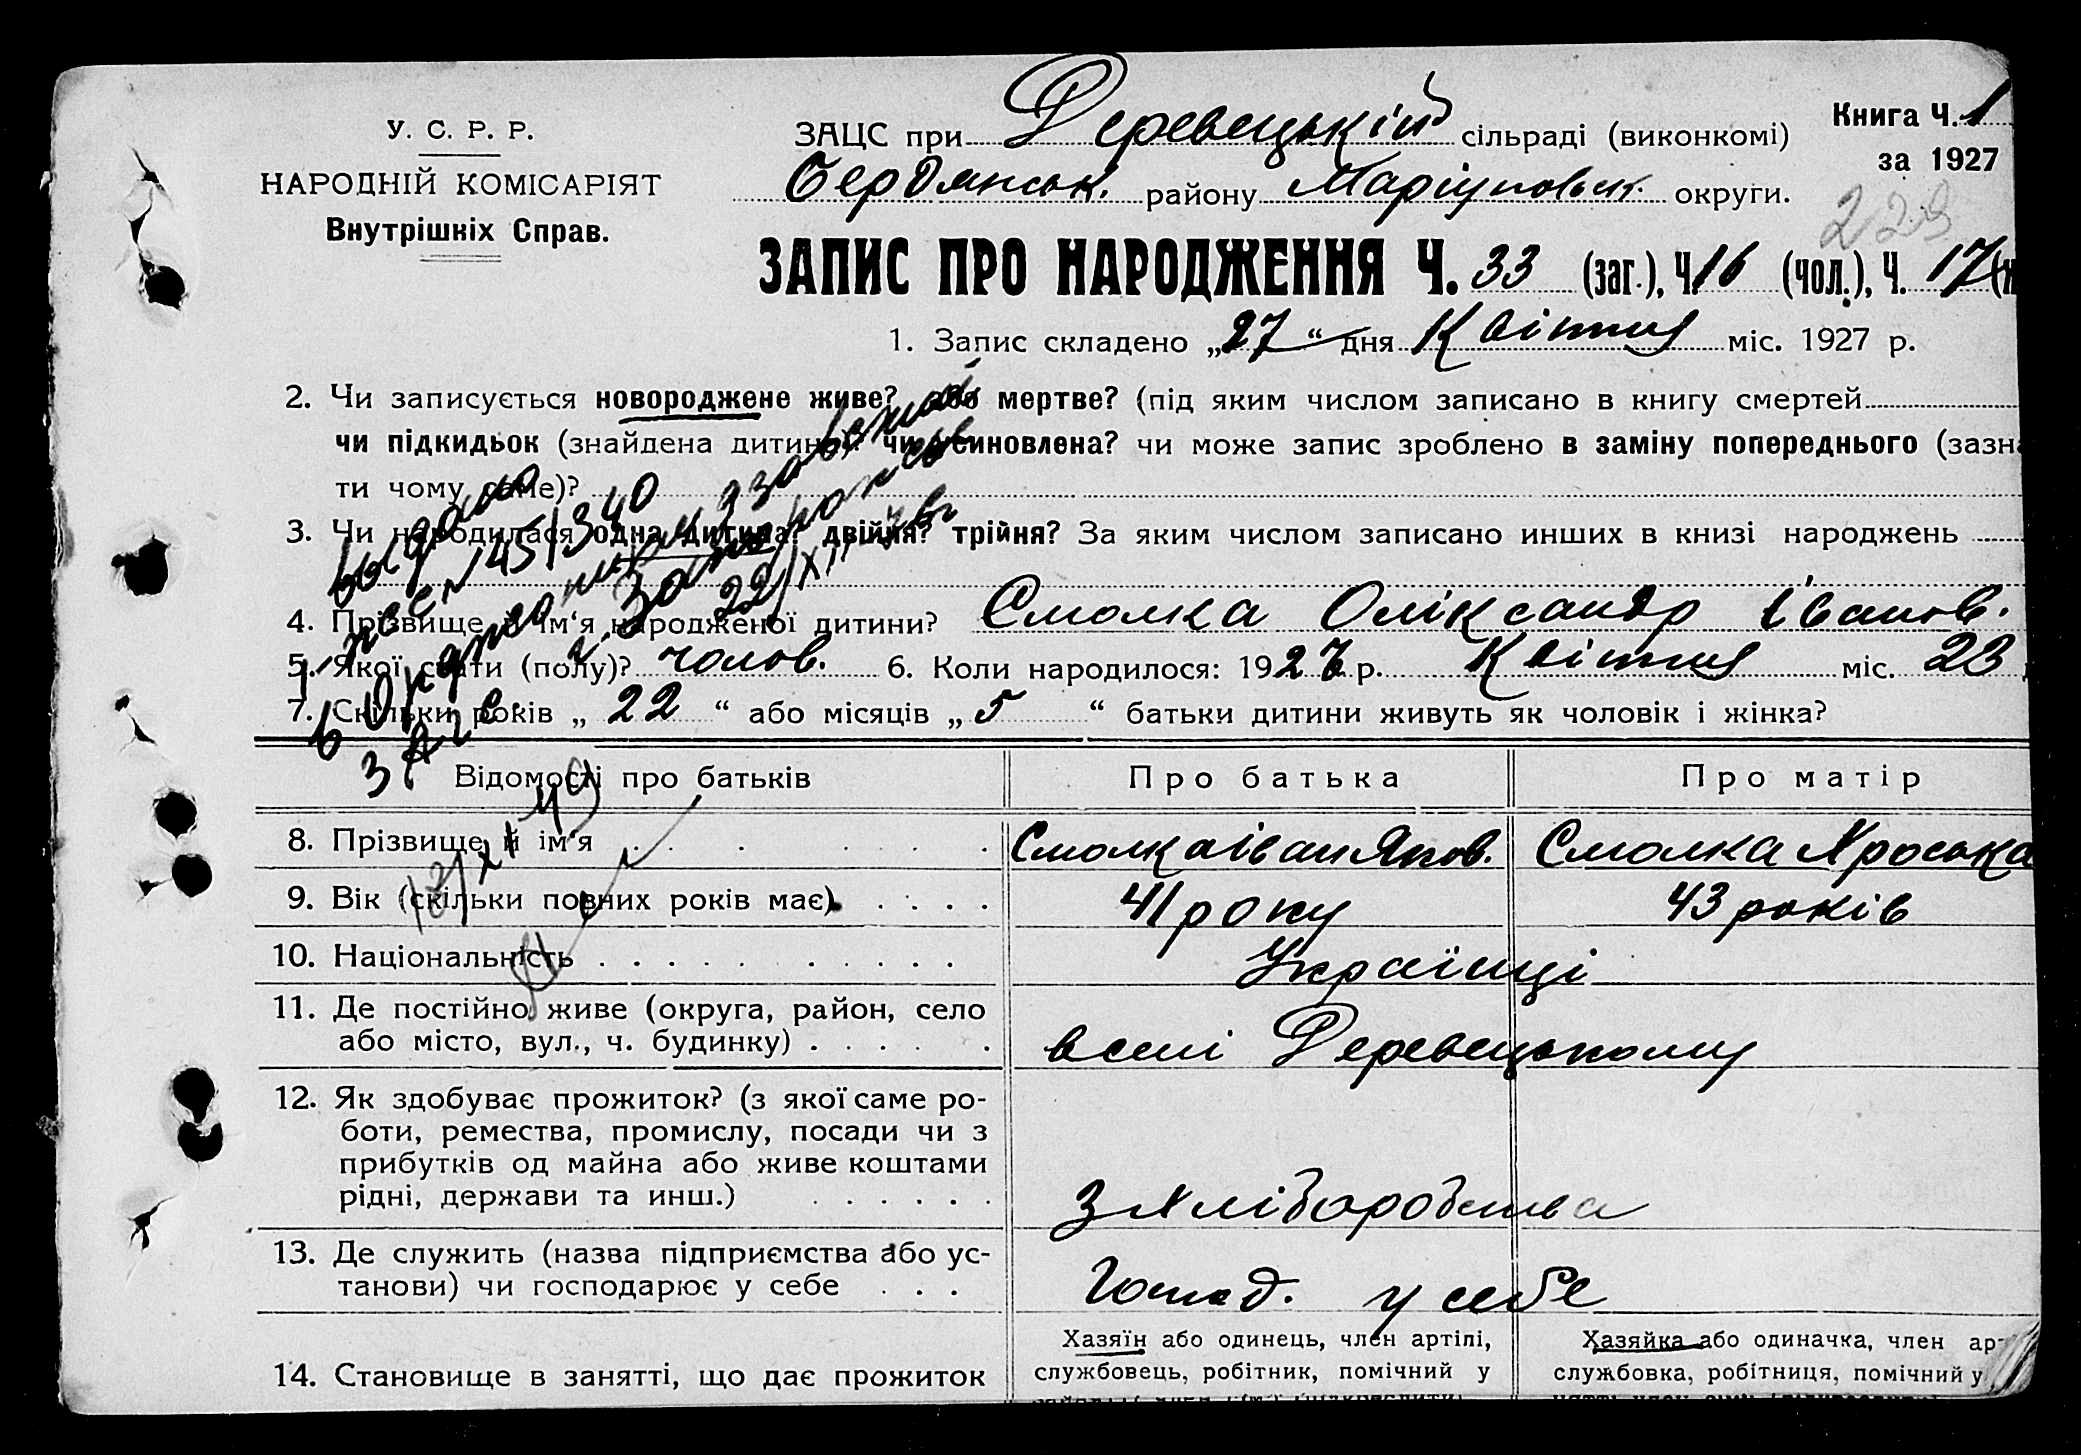 У. С. Р. Р.
НАРОДНІЙ КОМІСАРІЯТ
Внутрішніх Справ.
ЗАЦС при Деревецькій сільраді (виконкомі)
Бердянськ. району Маріупольск. округи.
Книга Ч. 1
за 1927
229
ЗАПИС ПРО НАРОДЖЕННЯ Ч. 33 (заг.), Ч. 16 (чол.), Ч. 17
1. Запис складено „27“ дня Квітня міс. 1927 р.
2. Чи записується новороджене живе? або мертве? (під яким числом записано в книгу смертей
чи підкидьок (знайдена дитина)? чи усиновлена? чи може запис зроблено в заміну попереднього (зазна
ти чому саме)?
3. Чи народилася одна дитина? двійня? трійня? За яким числом записано инших в книзі народжень
4. Прізвище й ім'я народженої дитини? Смолка Оліксандр Іванов.
5. Якої стати (полу)? чолов. 6. Коли народилося: 1927 р. Квітня міс. 23
7. Скільки років „ 22 “ або місяців „ 5 “ батьки дитини живуть як чоловік і жінка?
Відомості про батьків
Про батька
Про матір
8. Прізвище й ім'я
Смолка Іван Яков.
Смолка Хроська
9. Вік (скільки повних років має)
41 року
43 років
10. Національність
Українці
11. Де постійно живе (округа, район, село
або місто, вул., ч. будинку)
в селі Деревецькому
12. Як здобуває прожиток? (з якої саме ро-
боти, ремества, промислу, посади чи з
прибутків од майна або живе коштами
рідні, держави та инш.)
З хліборобства
13. Де служить (назва підприємства або ус-
танови) чи господарює у себе
Господ. у себе
14. Становище в занятті, що дає прожиток
Хазяїн або одинець, член артілі,
службовець, робітник, помічний у
Хазяйка або одиначка, член ар
службовка, робітниця, помічний у